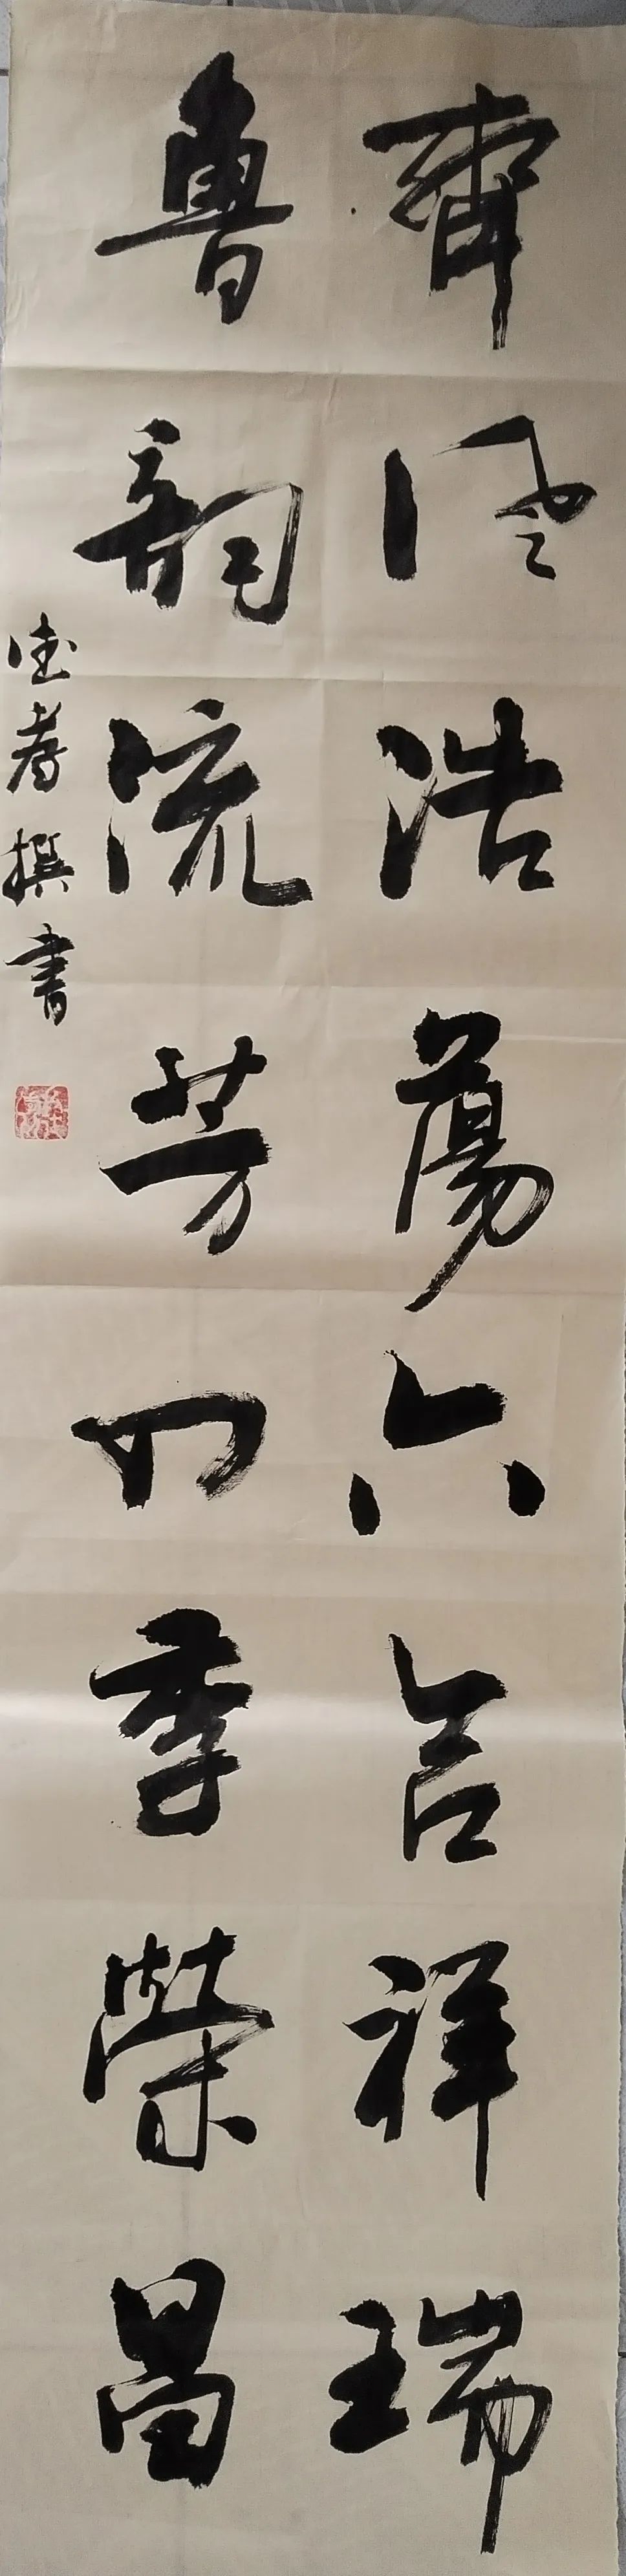 齊風浩蕩六合祥瑞
魯韻流芳四季榮昌
撰書